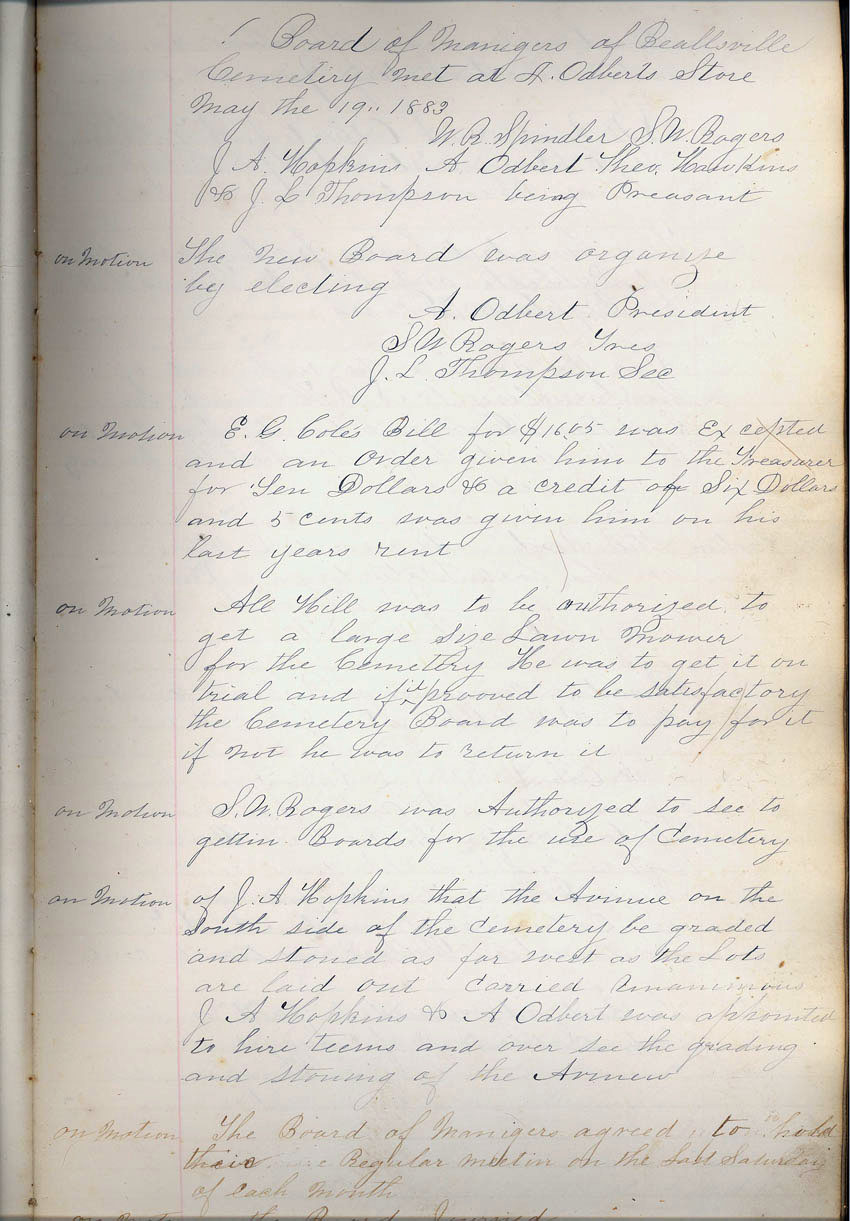 Board of Manigers of Beallsville
Cemetery met at A. Odberts Store
May the 19.. 1883
W. R. Spindler S. W. Rogers
J A. Hopkins A Odbert Theo. Hawkins
& J. L Thompson being Preasant
on Motion The new Board was organize
by electing
A. Odbert President
S W Rogers Tres
J. L. Thompson Sec
on Motion E. G. Coles Bill for $16.05 was Excepted
and an Order given him to the Treasurer
for Ten Dollars & a credit of Six Dollars
and 5 cents was given him on his
last years rent
on Motion All Hill was to be authorized to
get a large Size Lawn Mower
for the Cemetery He was to get it on
trial and if it prooved to be satisfactory
the Cemetery Board was to pay for it
if not he was to return it
on Motion S. W. Rogers was Authorized to see to
gettin Boards for the use of Cemetery
on Motion of J. A Hopkins that the Avinue on the
South side of the Cemetery be graded
and stoned as far west as the Lots
are laid out Carried Unanimous
J A Hopkins & A Odbert was appointed
to hire teems and over see the grading
and stoning of the Avinew
on Motion The Board of Manigers agreed to hold
their Regular meetin on the Last Saturday
of each Month
the Board